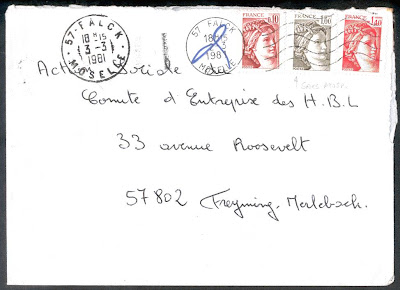 57-FALCK
18H15
3-3
1981
MOSELLE
57 FALCK
18H
3
1981
MOSELLE
FRANCE 0,10
FRANCE
FRANCE 1,40
Action Sociale
Comite d'Entreprise des H.B.L
33 avenue Roosevelt
57802 Freyming. Merlebach.